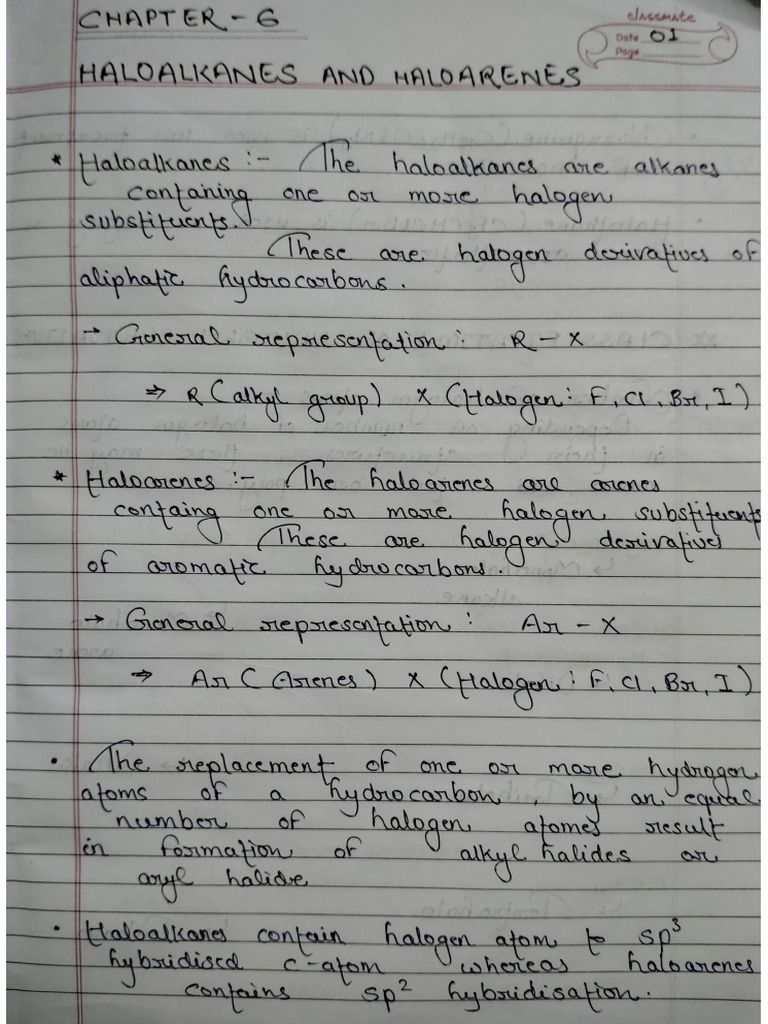 CHAPTER - 6
classmate
Date 01
Page
HALOALKANES AND HALOARENES
* Haloalkanes :- The haloalkanes are alkanes
containing one or more halogen
substituents.
These are halogen derivatives of
aliphatic hydrocarbons.
→ General representation : R - X
⇒ R (alkyl group) X (Halogen : F, Cl, Br, I)
* Haloarenes :- The haloarenes are arenes
containg one or more halogen substituents
These are halogen derivatives
of aromatic hydrocarbons.
→ General representation : Ar - X
⇒ Ar (Arenes) X (Halogen : F, Cl, Br, I)
• The replacement of one or more hydrogen
atoms of a hydrocarbon, by an equal
number of halogen atomes result
in formation of alkyl halides or
aryl halide
• Haloalkanes contain halogen atom to sp³
hybridised c-atom whereas haloarenes
contains sp² hybridisation.